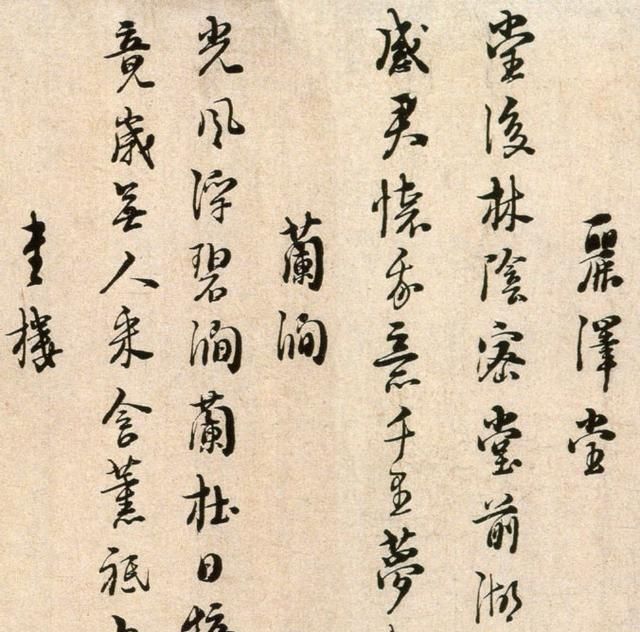 麗澤堂
堂後林陰密堂前湖
感君懷我意千里夢
蘭澗
光風浮碧澗蘭杜日
竟歲無人采含薰祗
書樓